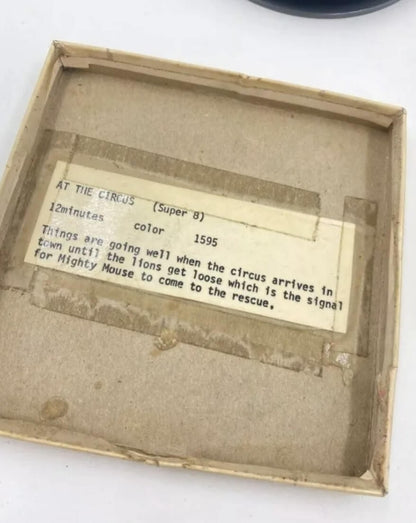 AT THE CIRCUS (Super 8)
12minutes color 1595
Things are going well when the circus arrives in
town until the lions get loose which is the signal
for Mighty Mouse to come to the rescue.